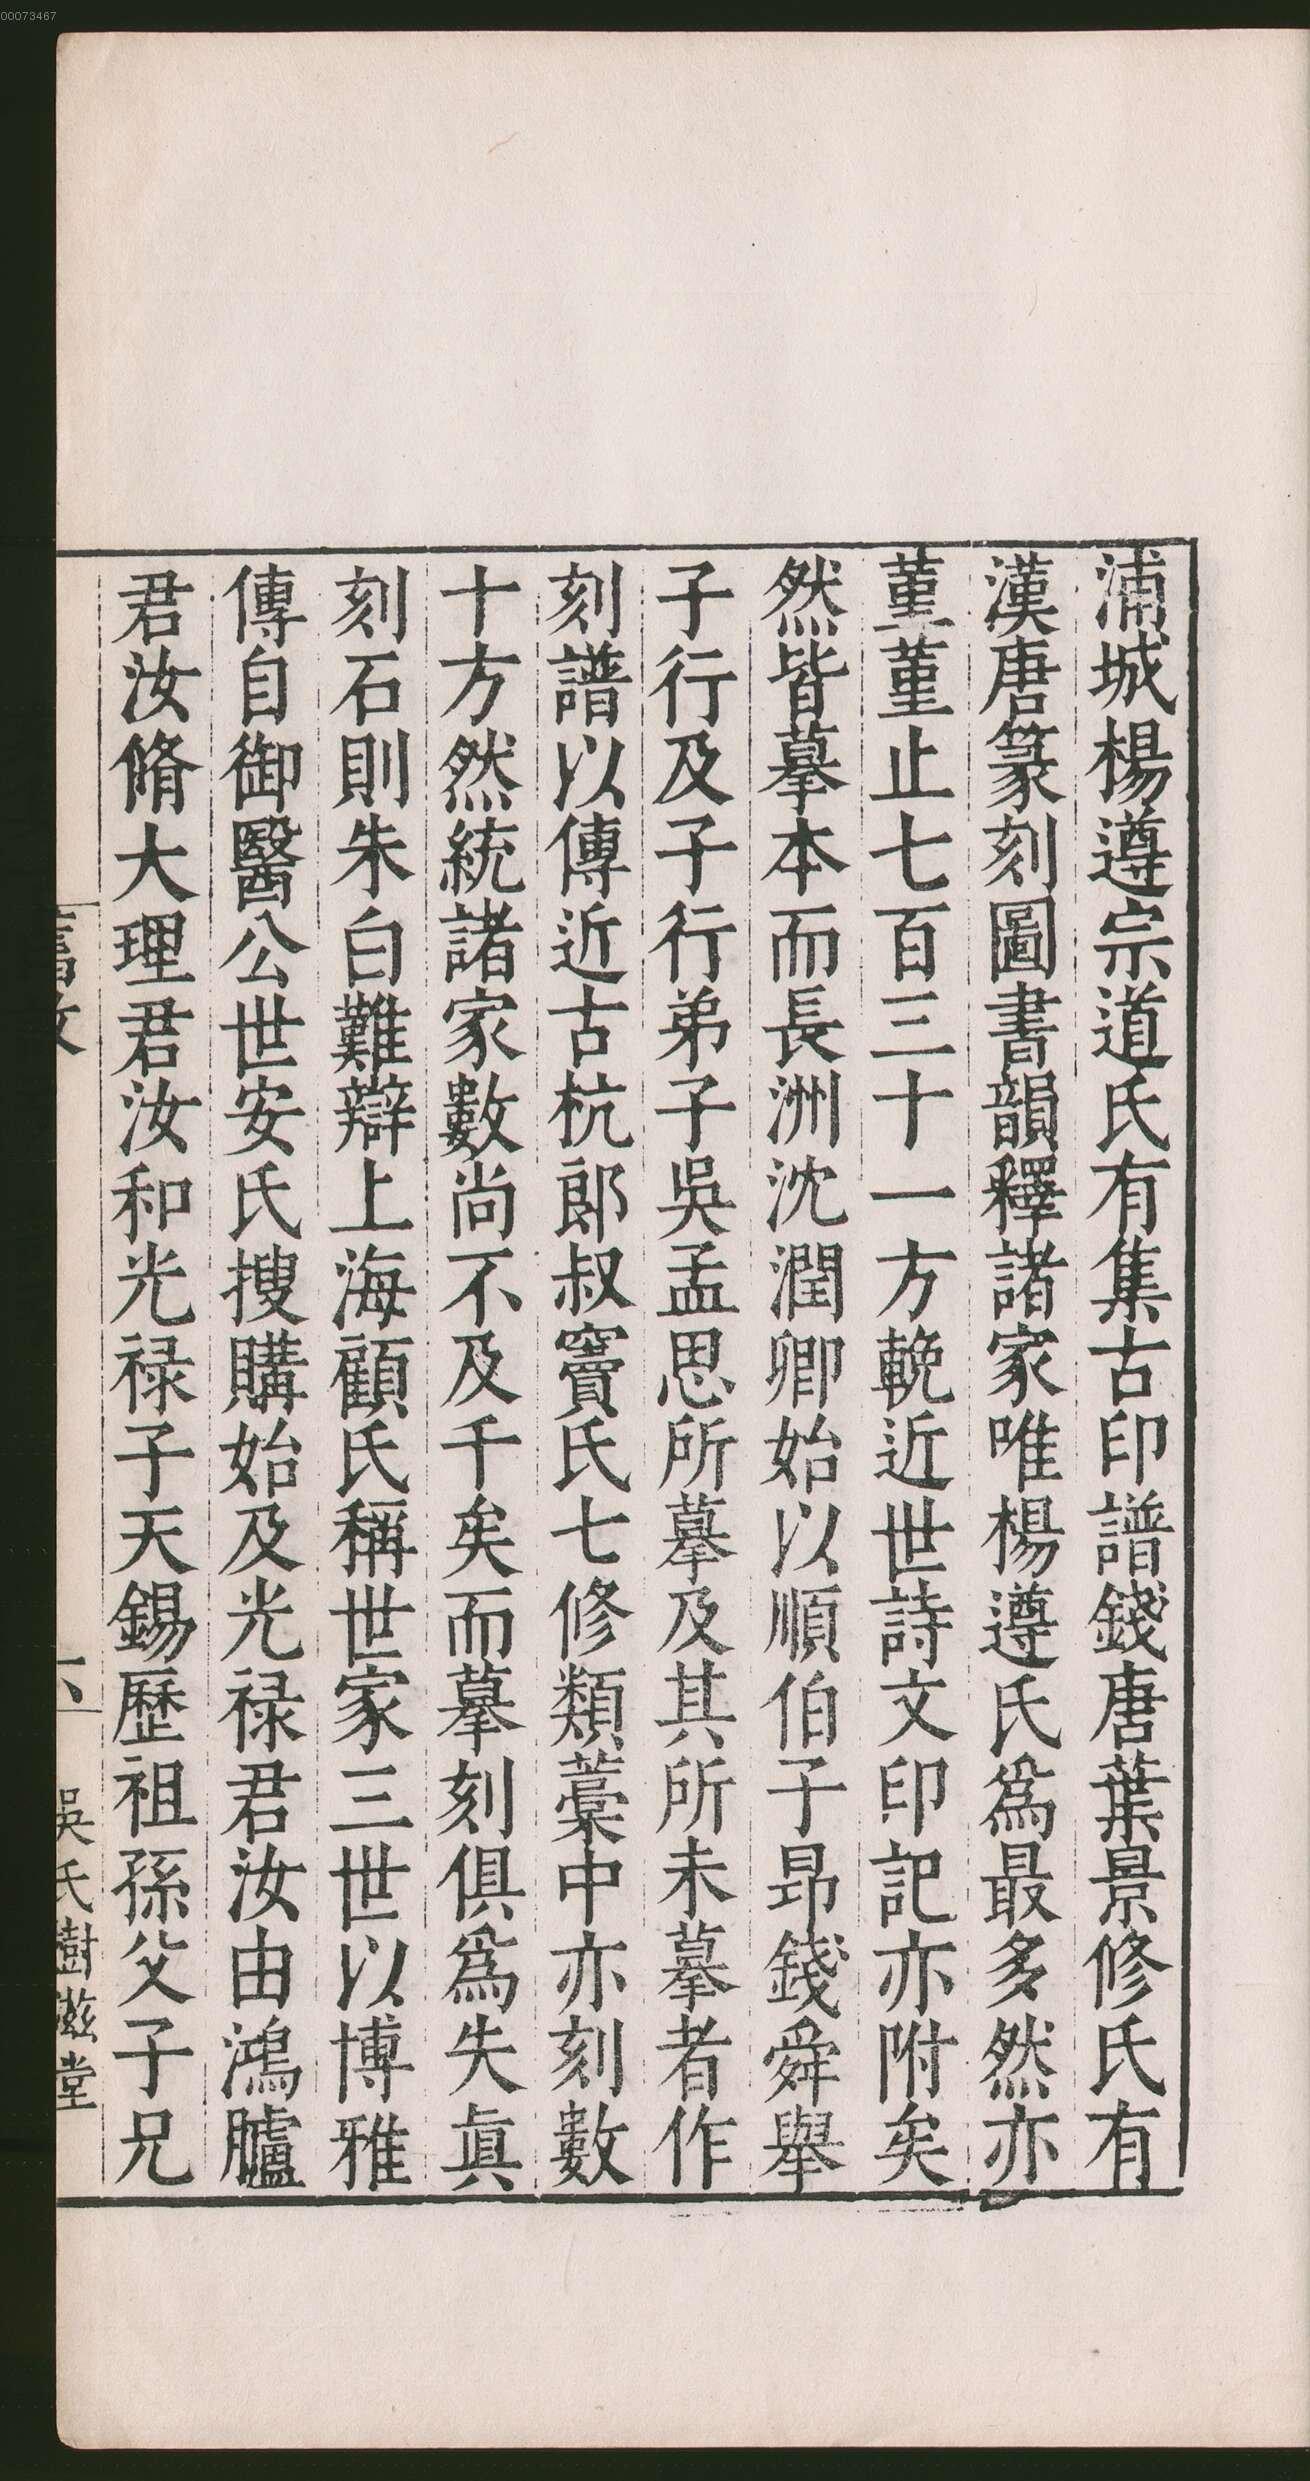 00073467
浦城楊遵宗道氏有集古印譜錢唐葉景修氏有
漢唐篆刻圖書韻釋諸家唯楊遵氏爲最多然亦
菫菫止七百三十一方輓近世詩文印記亦附矣
然皆摹本而長洲沈潤卿始以順伯子昂錢舜舉
子行及子行弟子吳孟思所摹及其所未摹者作
刻譜以傳近古杭郎叔寶氏七修類藁中亦刻數
十方然統諸家數尚不及千矣而摹刻俱爲失眞
刻石則朱白難辯上海顧氏稱世家三世以博雅
傳自御醫公世安氏搜購始及光禄君汝由鴻臚
君汝脩大理君汝和光禄子天錫歷祖孫父子兄
吳氏樹滋堂